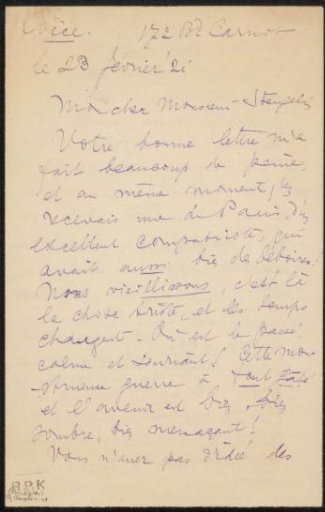 Nice. 172 Bd Carnot
le 23 février '21
Mon cher Monsieur
Votre bonne lettre m'a
fait beaucoup de peine,
et au même moment, je
recevais une de Paris, d'un
excellent compatriote, qui
avait aussi bien des déboires!
Nous vieillissons, c'est là
la chose triste, et les temps
changent. Où est le passé
calme et souriant! Cette mon
-strueuse guerre a tout gâté
et l'avenir est bien, bien
sombre, bien menaçant!
Vous n'avez pas d'idée des